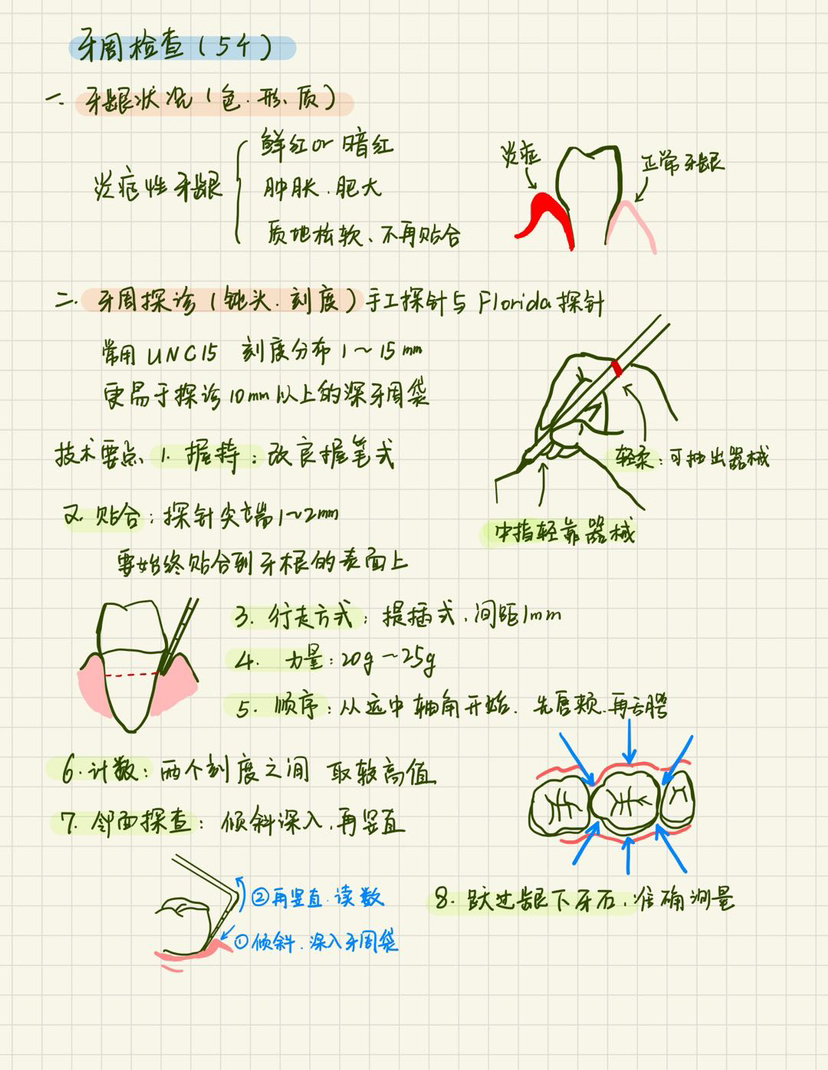 牙周检查(5个)
一. 牙龈状况(色.形.质)
炎症性牙龈
鲜红or暗红
肿胀.肥大
质地松软、不再贴合
炎症
正常牙龈
二. 牙周探诊(钝头.刻度)手工探针与Florida探针
常用UNC15 刻度分布1~15mm
更易于探诊10mm以上的深牙周袋
技术要点 1. 握持:改良握笔式
轻柔:可抽出器械
中指轻靠器械
2. 贴合:探针尖端1~2mm
要始终贴合到牙根的表面上
3. 行走方式:提插式.间距1mm
4. 力量:20g~25g
5. 顺序:从远中轴角开始.先唇颊.再舌腭
6.计数:两个刻度之间 取较高值
7. 邻面探查:倾斜深入.再竖直
②再竖直.读数
①倾斜.深入牙周袋
8. 跃过龈下牙石.准确测量